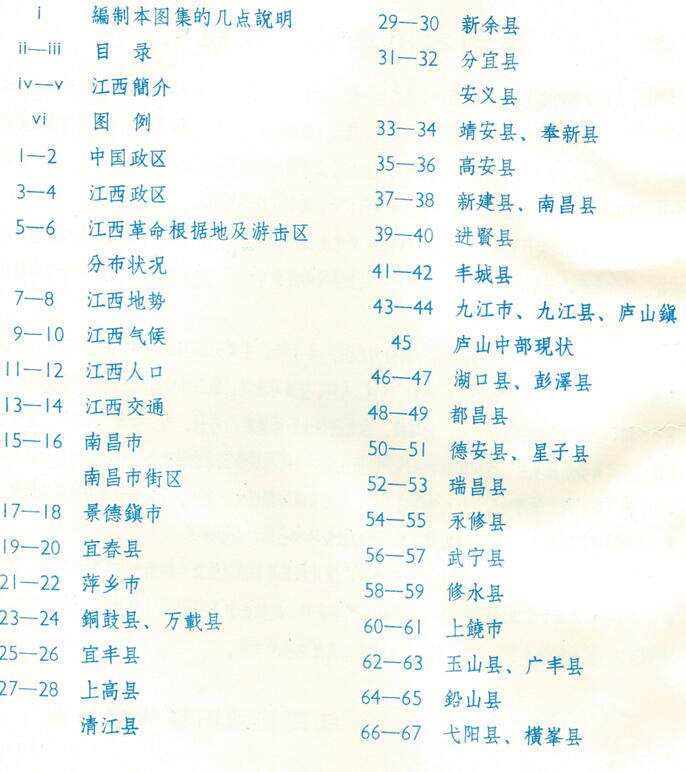 i 編制本图集的几点說明
ii—iii 目 录
iv—v 江西簡介
vi 图 例
1—2 中国政区
3—4 江西政区
5—6 江西革命根据地及游击区
分布状况
7—8 江西地势
9—10 江西气候
11—12 江西人口
13—14 江西交通
15—16 南昌市
南昌市街区
17—18 景德鎭市
19—20 宜春县
21—22 萍乡市
23—24 銅鼓县、万載县
25—26 宜丰县
27—28 上高县
清江县
29—30 新余县
31—32 分宜县
安义县
33—34 靖安县、奉新县
35—36 高安县
37—38 新建县、南昌县
39—40 进賢县
41—42 丰城县
43—44 九江市、九江县、庐山鎭
45 庐山中部現状
46—47 湖口县、彭澤县
48—49 都昌县
50—51 德安县、星子县
52—53 瑞昌县
54—55 永修县
56—57 武宁县
58—59 修水县
60—61 上饒市
62—63 玉山县、广丰县
64—65 鉛山县
66—67 弋阳县、橫峯县